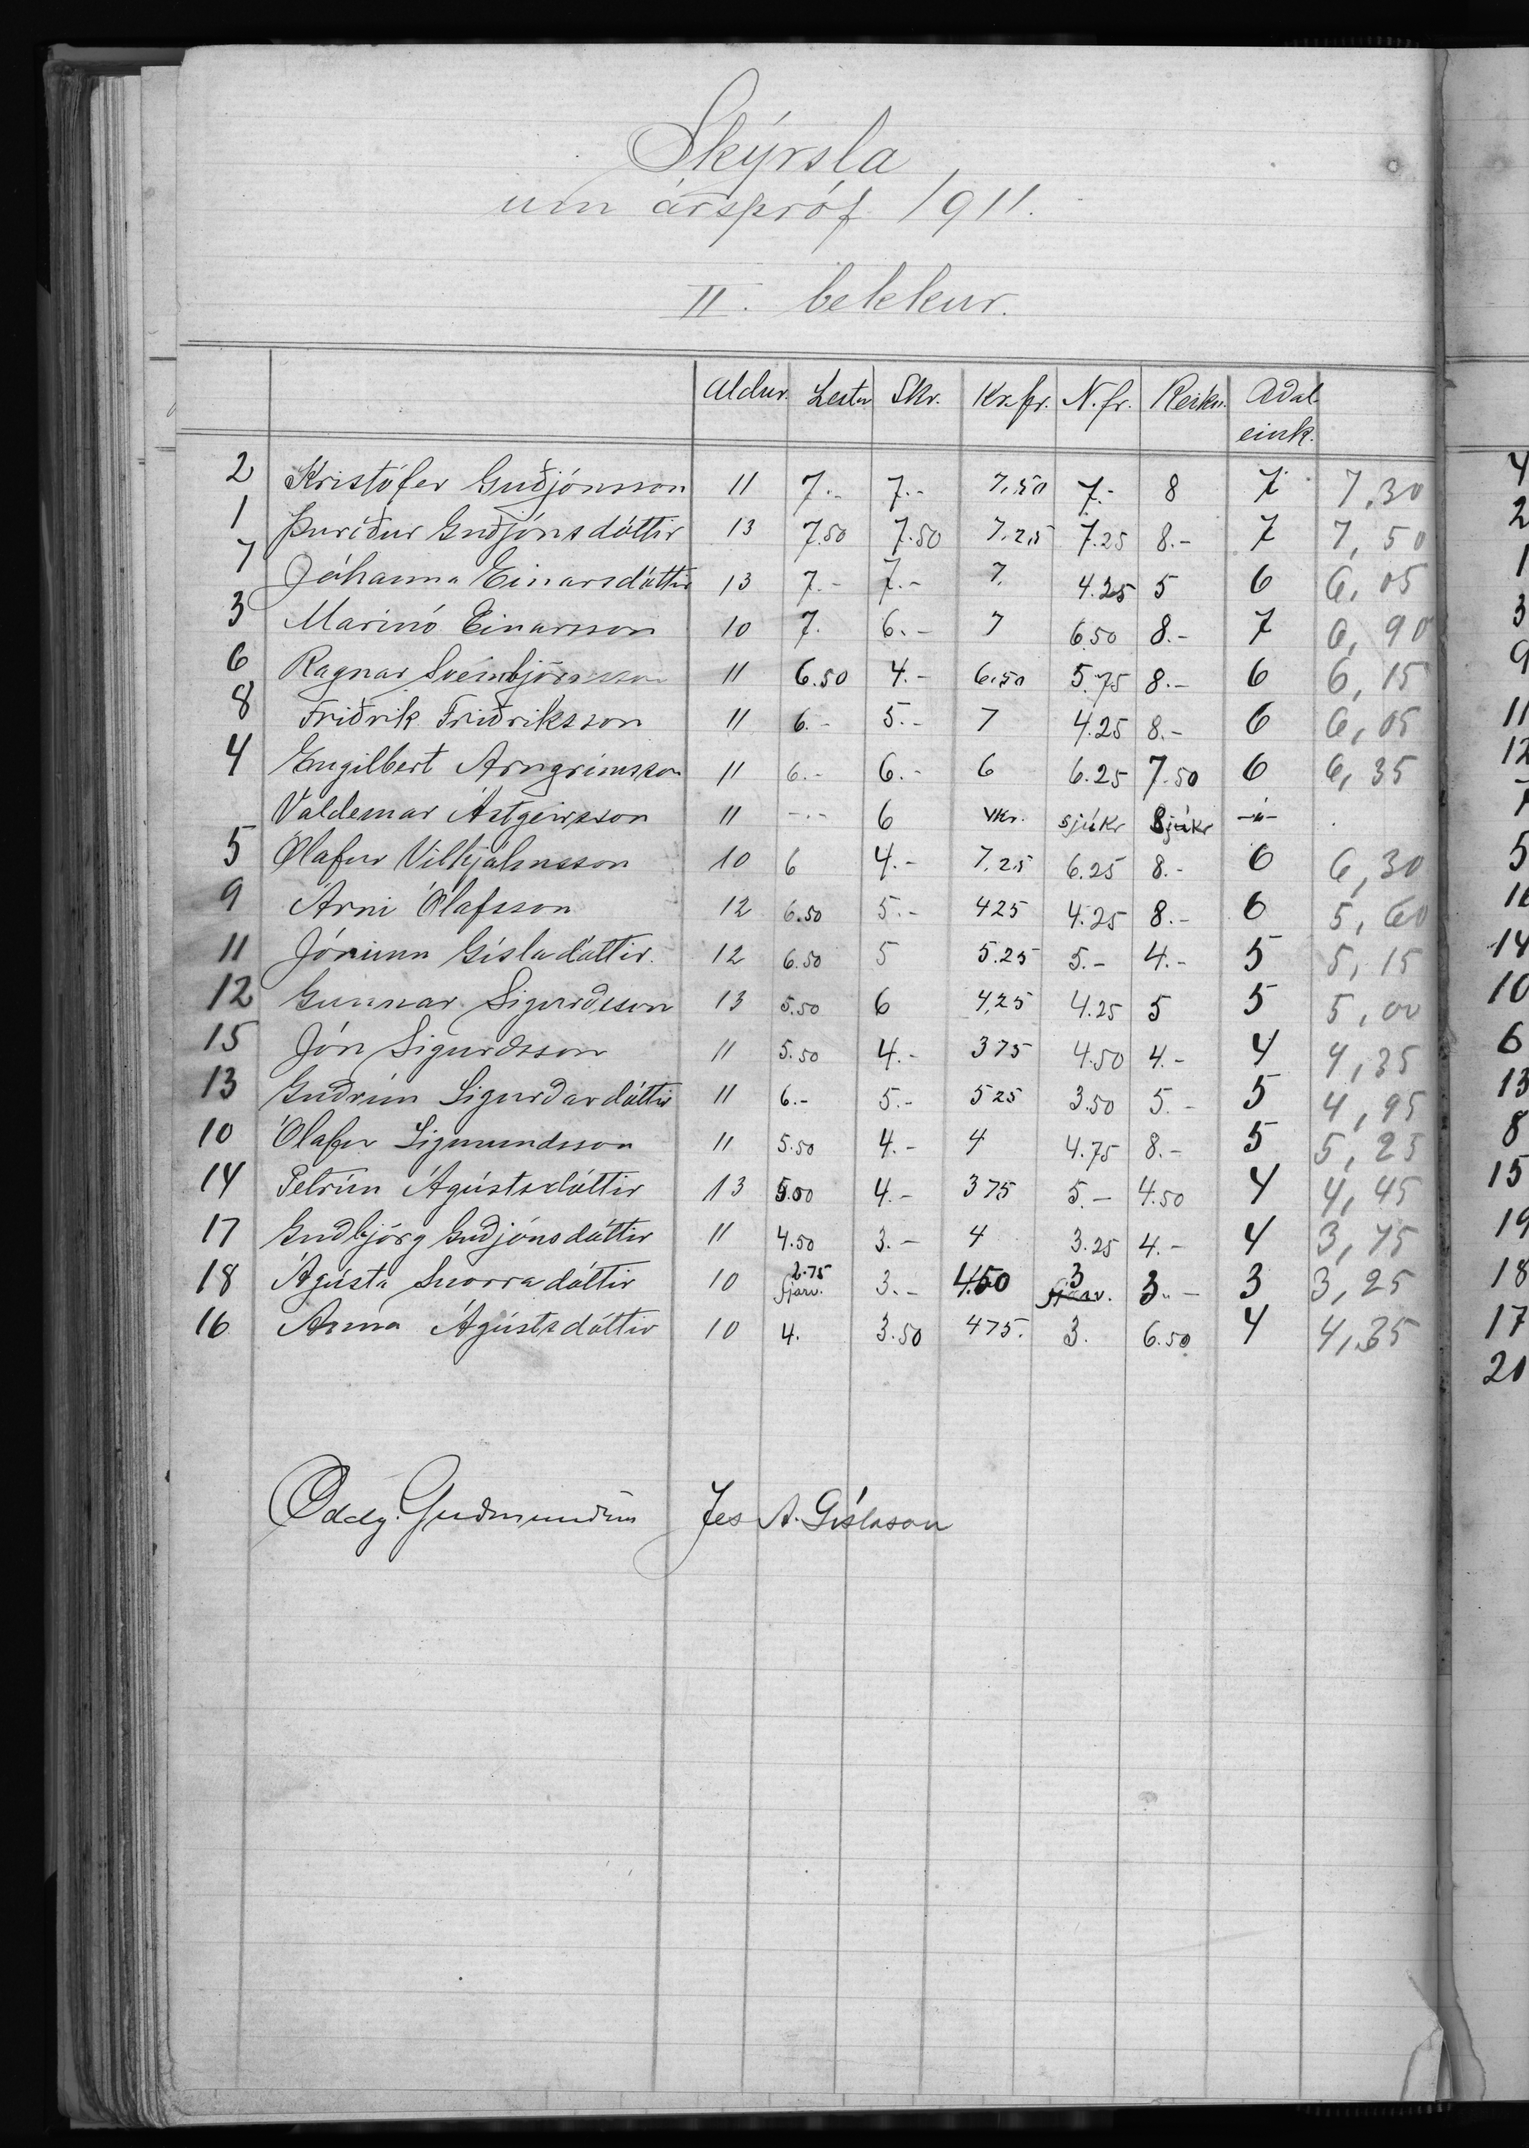 Skýrsla
um árspróf 1911.
II. bekkur.
Aldur. Lestur Skr. Kr.fr. N.fr. Reikn. Aðal-
eink.
2 Kristófer Guðjónsson 11 7.- 7.- 7.50 7.- 8 7 7,30
1 Þuríður Guðjónsdóttir 13 7.50 7.50 7.25 7.25 8.- 7 7,50
7 Jóhanna Einarsdóttir 13 7.- 7.- 7. 4.25 5 6 6,05
3 Marinó Einarsson 10 7. 6.- 7 6.50 8.- 7 6,90
6 Ragnar Sveinbjörnsson 11 6.50 4.- 6.50 5.75 8.- 6 6,15
8 Friðrik Friðriksson 11 6.- 5.- 7 4.25 8.- 6 6,05
4 Engilbert Arngrímsson 11 6.- 6.- 6 6.25 7.50 6 6,35
Valdemar Ástgeirsson 11 -.- 6 sjúkr sjúkr -"-
5 Ólafur Vilhjálmsson 10 6 4.- 7.25 6.25 8.- 6 6,30
9 Árni Ólafsson 12 6.50 5.- 425 4.25 8.- 6 5,60
11 Jórunn Gísladóttir. 12 6.50 5 5.25 5.- 4.- 5 5,15
12 Gunnar Sigurðsson 13 5.50 6 4,25 4.25 5 5 5,00
15 Jón Sigurðsson 11 5.50 4.- 375 4.50 4.- 4 4,35
13 Guðrún Sigurðardóttir 11 6.- 5.- 525 3.50 5.- 5 4,95
10 Ólafur Sigmundsson 11 5.50 4.- 4 4.75 8.- 5 5,25
14 Petrún Ágústsdóttir 13 5.00 4.- 375 5.- 4.50 4 4,45
17 Guðbjörg Guðjónsdóttir 11 4.50 3.- 4 3.25 4.- 4 3,75
18 Ágústa Snorradóttir 10 2.75 fjarv. 3.- 4.50 3 fjarv. 3.- 3 3,25
16 Anna Ágústsdóttir 10 4. 3.50 475. 3. 6.50 4 4,35
Oddg. Guðmundsen Jes A. Gíslason
4
2
1
3
9
11
12
7
5
16
14
10
6
13
8
15
19
18
17
20